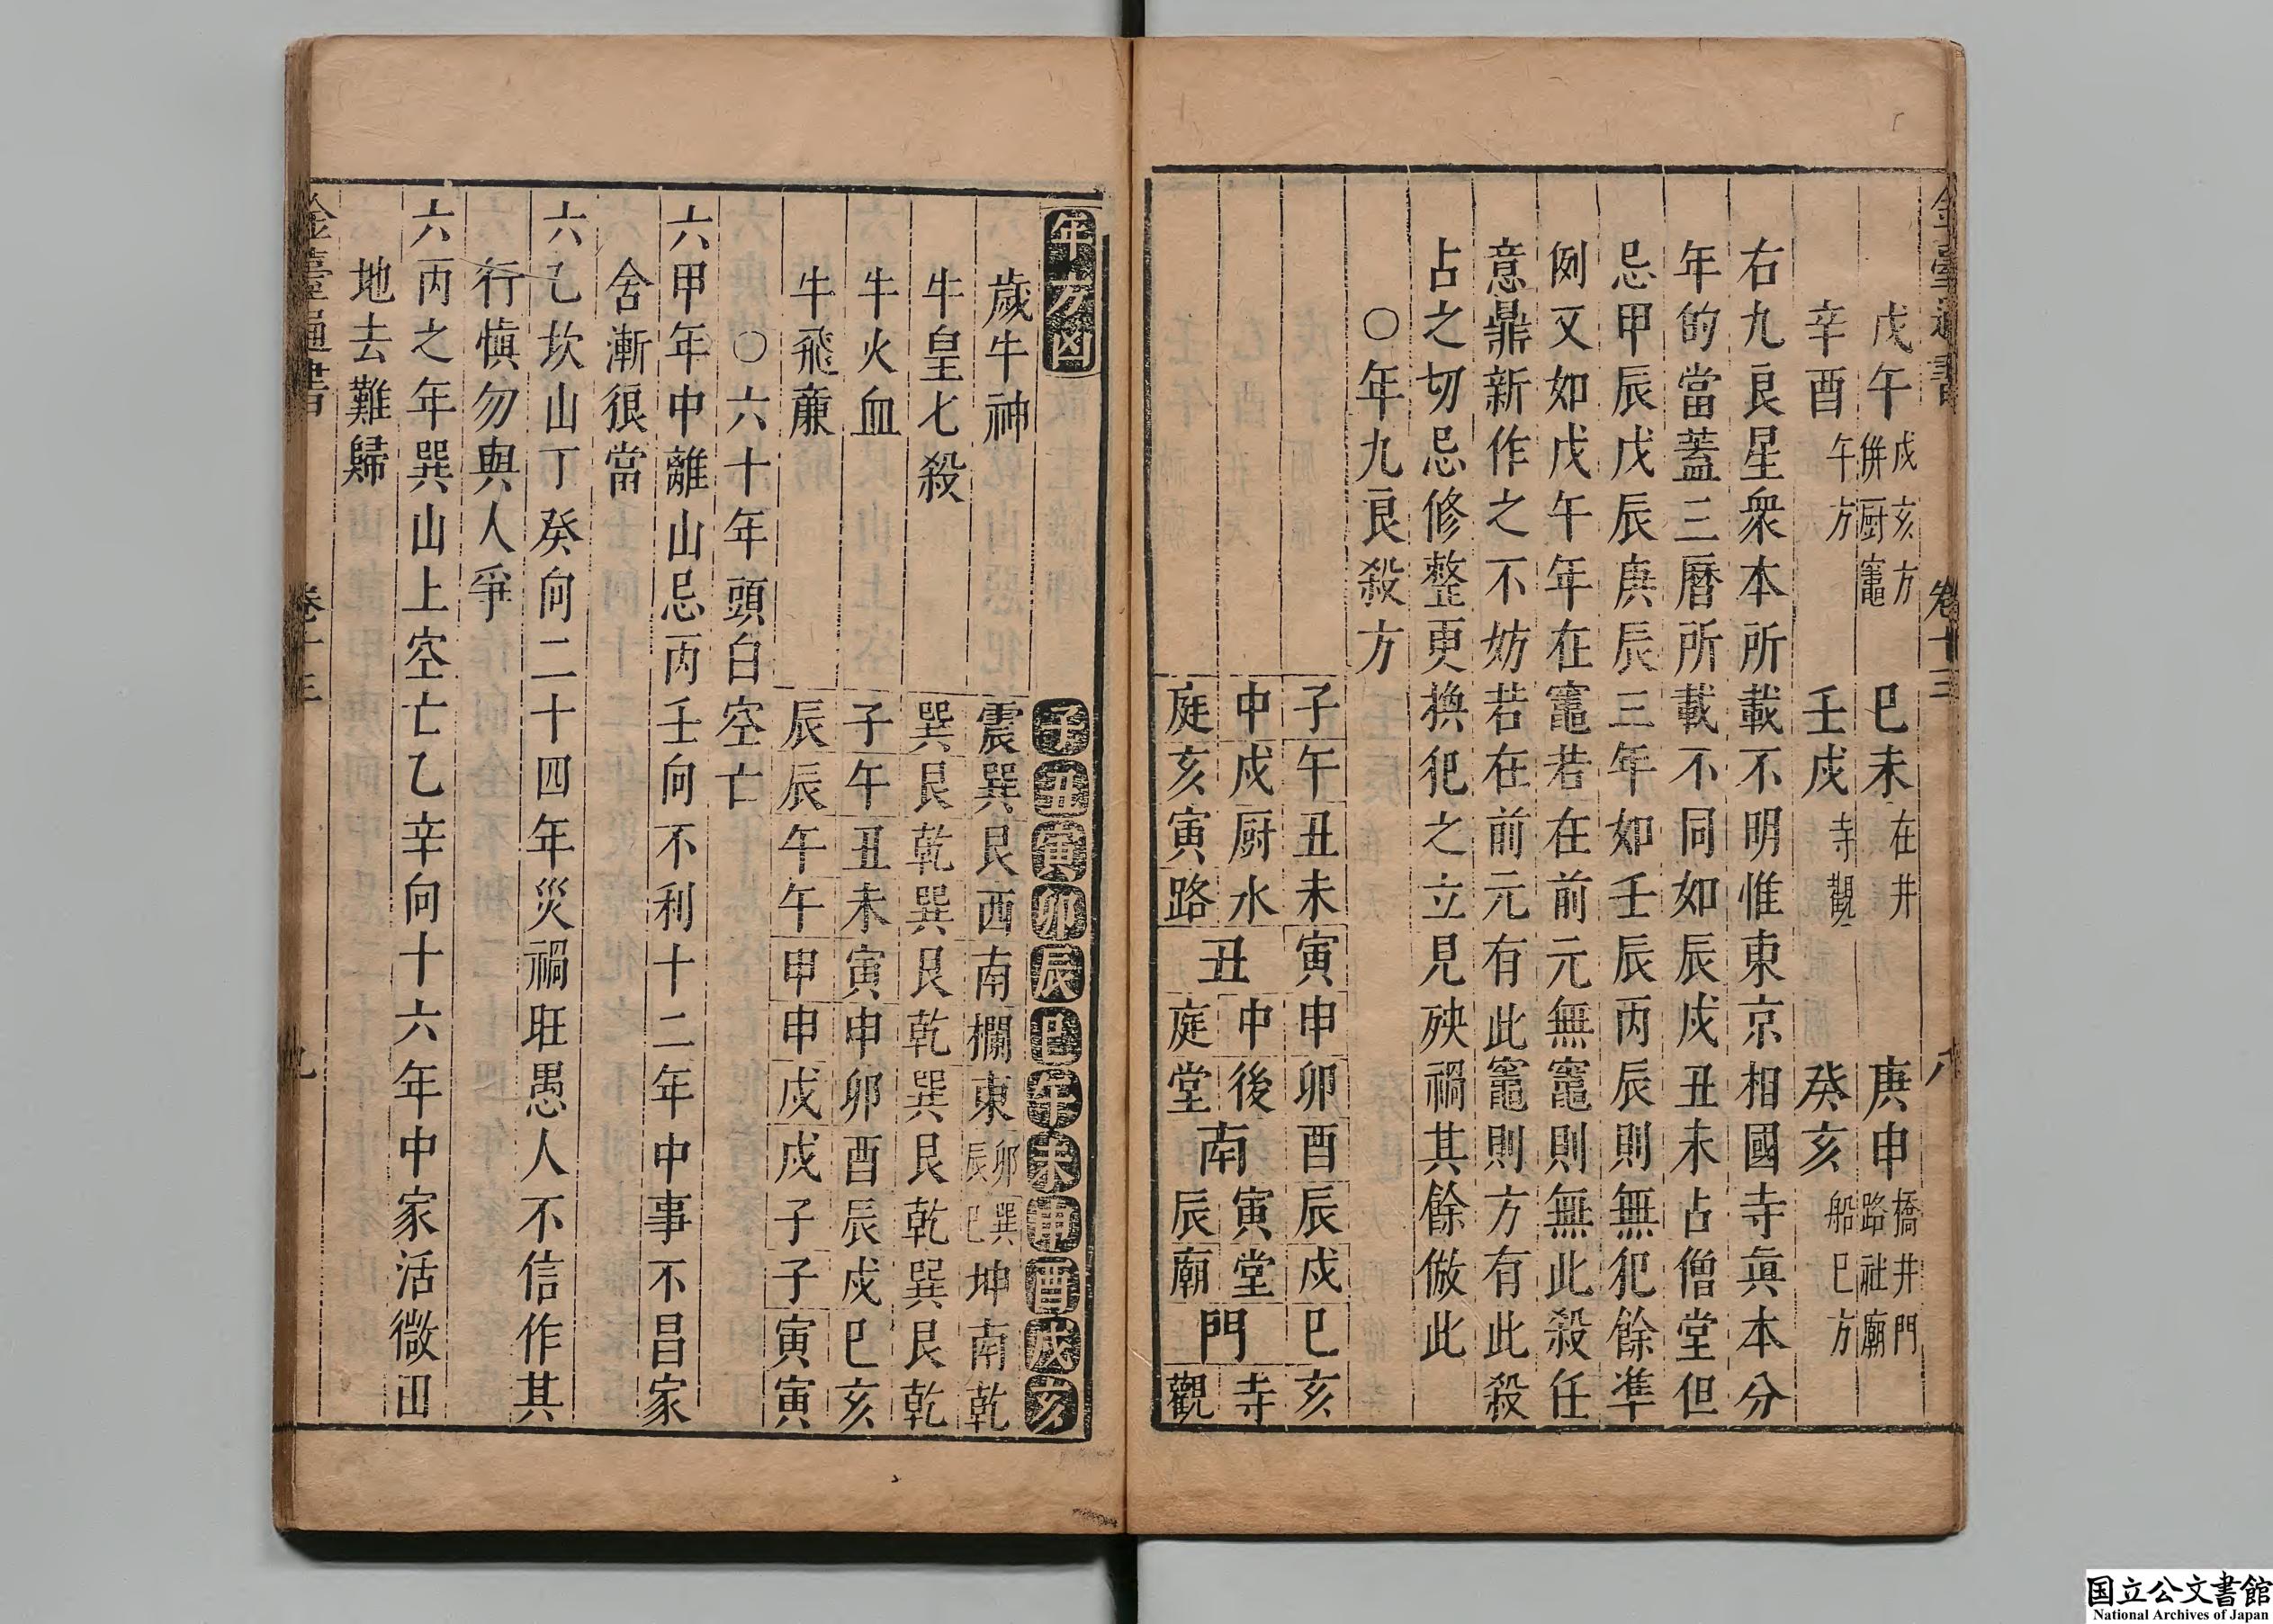 金臺通書 卷十三 八
戊午 戌亥方併厨竈 巳未 在井 庚申 橋井門路社廟
辛酉 午方 壬戌 寺觀 癸亥 船巳方
右九良星衆本所載不明惟東京相國寺眞本分
年的當蓋三曆所載不同如辰戌丑未占僧堂但
忌甲辰戊辰庚辰三年如壬辰丙辰則無犯餘準
例又如戊午年在竈若在前元無竈則無此殺任
意鼎新作之不妨若在前元有此竈則方有此殺
占之切忌修整更換犯之立見殃禍其餘倣此
○年九良殺方
子午丑未寅申卯酉辰戌巳亥
中戌厨水丑中後南寅堂門寺
庭亥寅路 庭堂 辰廟 觀
年方凶 子丑寅卯辰巳午未申酉戌亥
歲牛神 震巽艮西南欄東卯辰巽巳坤南乾
牛皇七殺 巽艮乾巽艮乾巽艮乾巽艮乾
牛火血 子午丑未寅申卯酉辰戌巳亥
牛飛廉 辰辰午午申申戌戌子子寅寅
○六十年頭白空亡
六甲年中離山忌丙壬向不利十二年中事不昌家
舍漸很當
六乙坎山丁癸向二十四年災禍旺愚人不信作其
行慎勿與人爭
六丙之年巽山上空亡乙辛向十六年中家活微田
地去難歸
金臺通書 卷十三 九
国立公文書館
National Archives of Japan